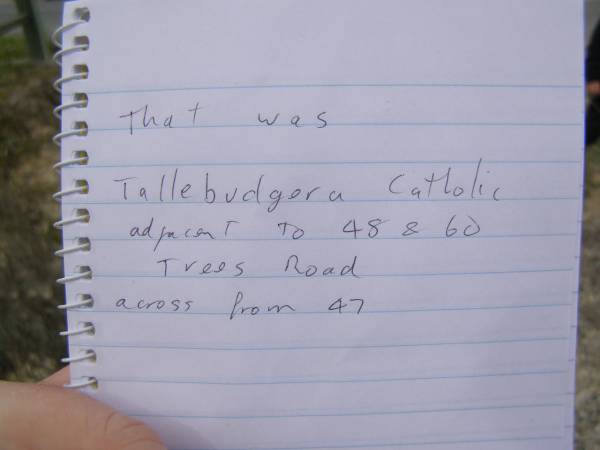 That was
Tallebudgera Catholic
adjacent to 48 & 60
Trees Road
across from 47